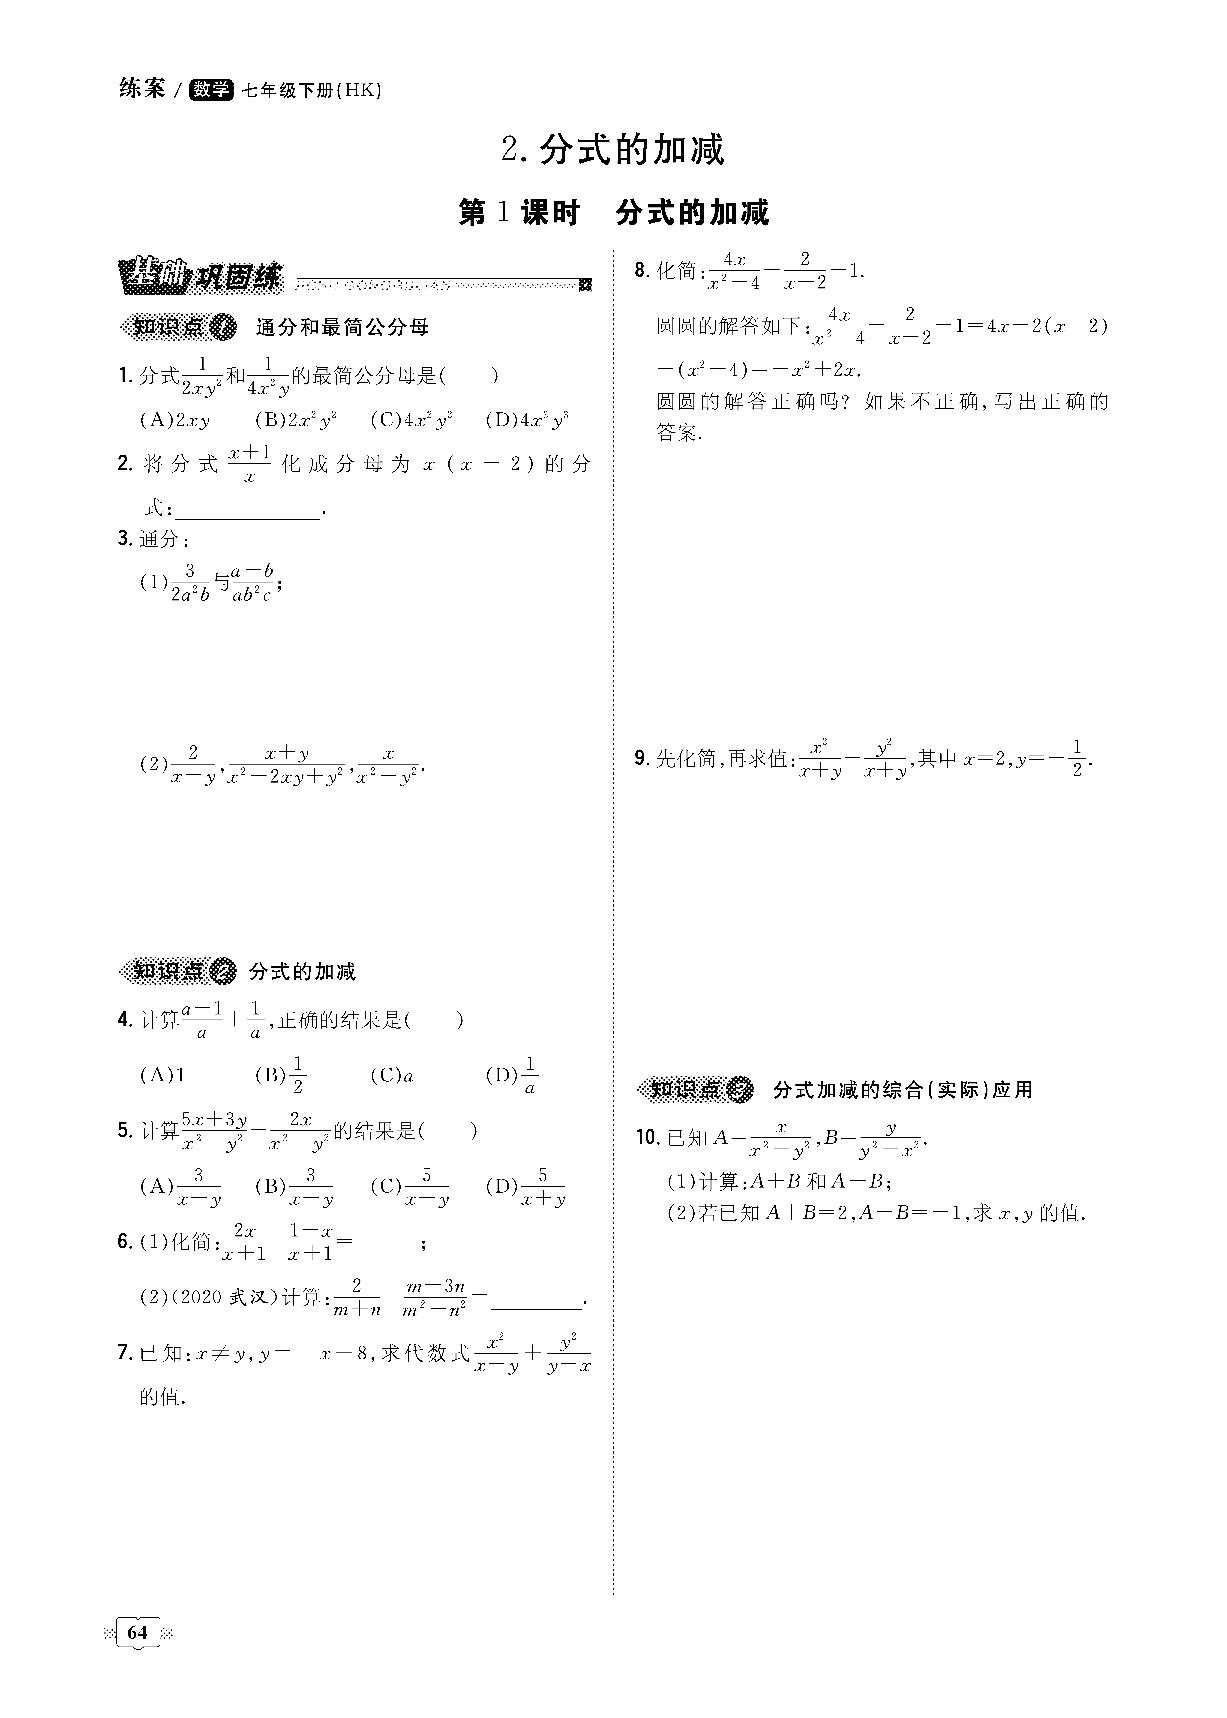 练案 / 数学 七年级下册(HK)
2. 分式的加减
第 1 课时 分式的加减
基础 巩固练
知识点 1 通分和最简公分母
1. 分式 1/(2xy²) 和 1/(4x²y) 的最简公分母是( )
(A)2xy (B)2x²y² (C)4x²y² (D)4x³y³
2. 将分式 (x+1)/x 化成分母为 x(x-2)的分
式: ________.
3. 通分:
(1) 3/(2a²b) 与 (a-b)/(ab²c);
(2) 2/(x-y), (x+y)/(x²-2xy+y²), x/(x²-y²).
知识点 2 分式的加减
4. 计算 (a-1)/a + 1/a, 正确的结果是( )
(A)1 (B) 1/2 (C)a (D) 1/a
5. 计算 (5x+3y)/(x² y²) - 2x/(x² y²) 的结果是( )
(A) 3/(x-y) (B) 3/(x-y) (C) 5/(x-y) (D) 5/(x+y)
6. (1)化简: 2x/(x+1) (1-x)/(x+1) = ;
(2)(2020 武汉)计算: 2/(m+n) (m-3n)/(m²-n²) = ________.
7. 已知: x≠y, y= x-8, 求代数式 x²/(x-y) + y²/(y-x)
的值.
8. 化简: 4x/(x²-4) - 2/(x-2) -1.
圆圆的解答如下: 4x/(x² 4) - 2/(x-2) -1=4x-2(x 2)
-(x²-4)=-x²+2x.
圆圆的解答正确吗? 如果不正确, 写出正确的
答案.
9. 先化简, 再求值: x²/(x+y) - y²/(x+y), 其中 x=2, y=- 1/2.
知识点 3 分式加减的综合(实际)应用
10. 已知 A= x/(x²-y²), B= y/(y²-x²).
(1)计算: A+B 和 A-B;
(2)若已知 A+B=2, A-B=-1, 求 x, y 的值.
64